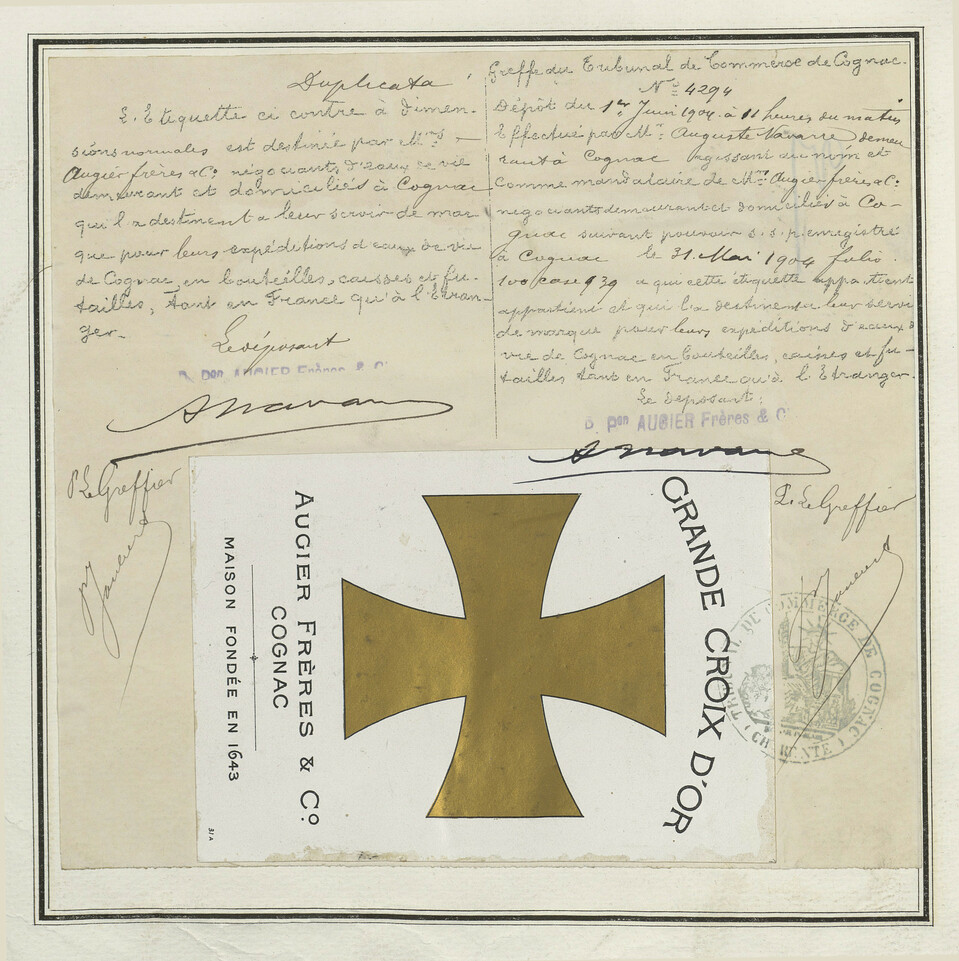 Duplicata
L'Etiquette ci contre à dimen-
sions normales est destinée par Mrs
Augier frères & Co. négociants d'eaux de vie
demeurant et domiciliés à Cognac
qui la destinent a leur servir de mar
que pour leurs expéditions d'eaux de vie
de Cognac, en bouteilles, caisses et fu-
tailles, tant en France qu'à l'Etran-
ger.
Le déposant
P. Pon AUGIER Frères & C
A Navarre
P. Le Greffier
Greffe du Tribunal de Commerce de Cognac.
No 4294
Dépôt du 1er Juin 1904 à 11 heures du matin
Effectué par M. Auguste Navarre demeu
rant à Cognac agissant au nom et
comme mandataire de Mrs Augier frères & Co.
négociants demeurant et domiciliés à Co-
gnac suivant pouvoir s.s.p. enregistré
à Cognac le 31 Mai 1904 folio
100 case 939 a qui cette étiquette appartient
appartient et qui la destinent a leur servir
de marque pour leurs expéditions d'eaux de
vie de Cognac en bouteilles, caisses et fu-
tailles tant en France qu'à l'Etranger.
Le déposant:
P. Pon AUGIER Frères & C
A Navarre
P. Le Greffier
GRANDE CROIX D'OR
AUGIER FRÈRES & Co.
COGNAC
MAISON FONDÉE EN 1643
31A
TRIBUNAL DE COMMERCE DE COGNAC
(CHARENTE)